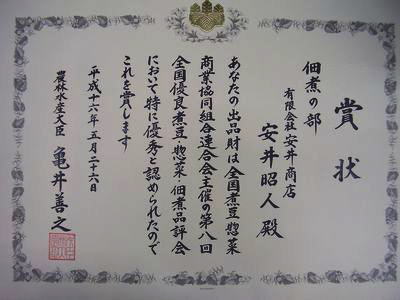 賞状
佃煮の部
有限会社安井商店
安井昭人殿
あなたの出品財は全国煮豆惣菜
商業協同組合連合会主催の第八回
全国優良煮豆惣菜佃煮品評会
において特に優秀と認められたので
これを賞します
平成十六年五月二十六日
農林水産大臣 亀井善之